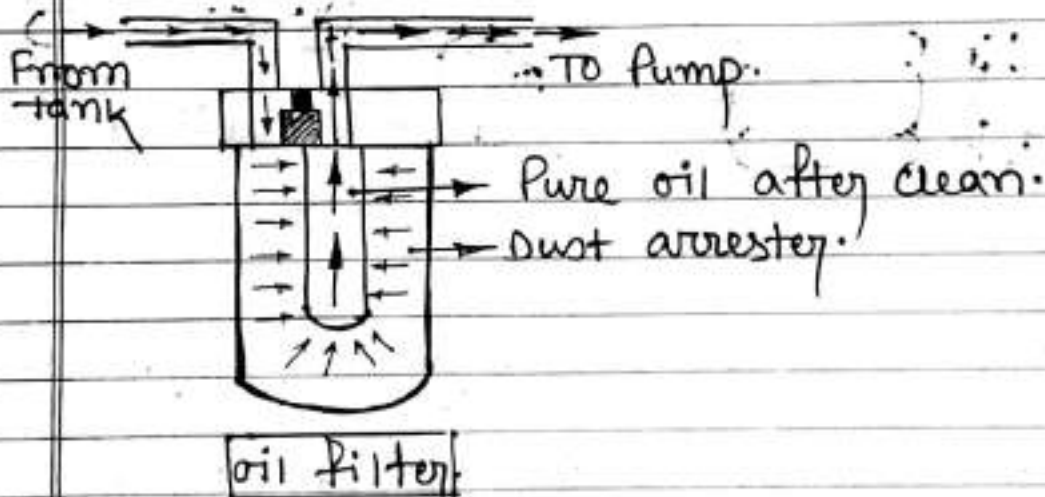 From
Tank
To Pump.
Pure oil after clean.
Dust arrester.
oil filter.